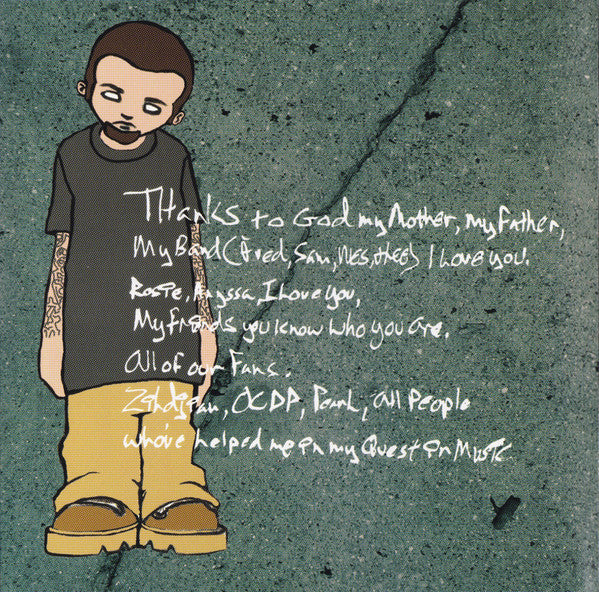 Thanks to God my Mother, my father,
My Band (Fred, Sam, Wes, ) I Love you.
Rosie, Alyssa, I Love you,
My friends you know who you are.
All of our Fans.
Zildjian, OCDP, Pearl, all People
who've helped me in my Quest in Music